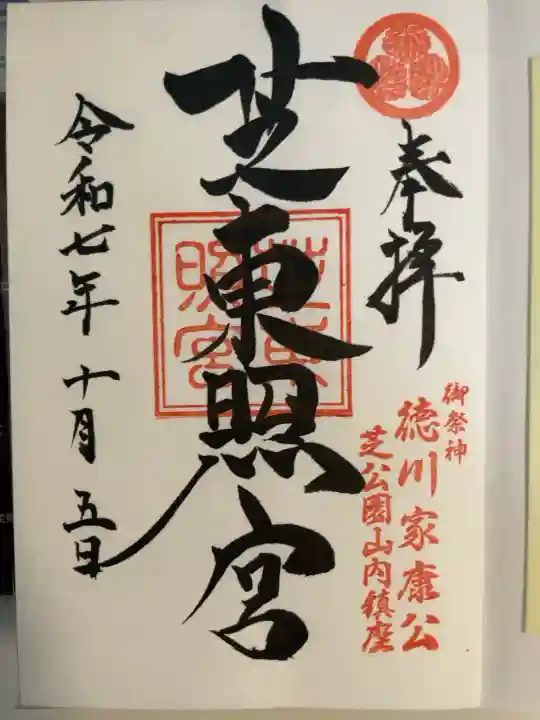 奉拝
御祭神
徳川家康公
芝公園山内鎮座
芝東照宮
芝東照宮
令和七年十月五日